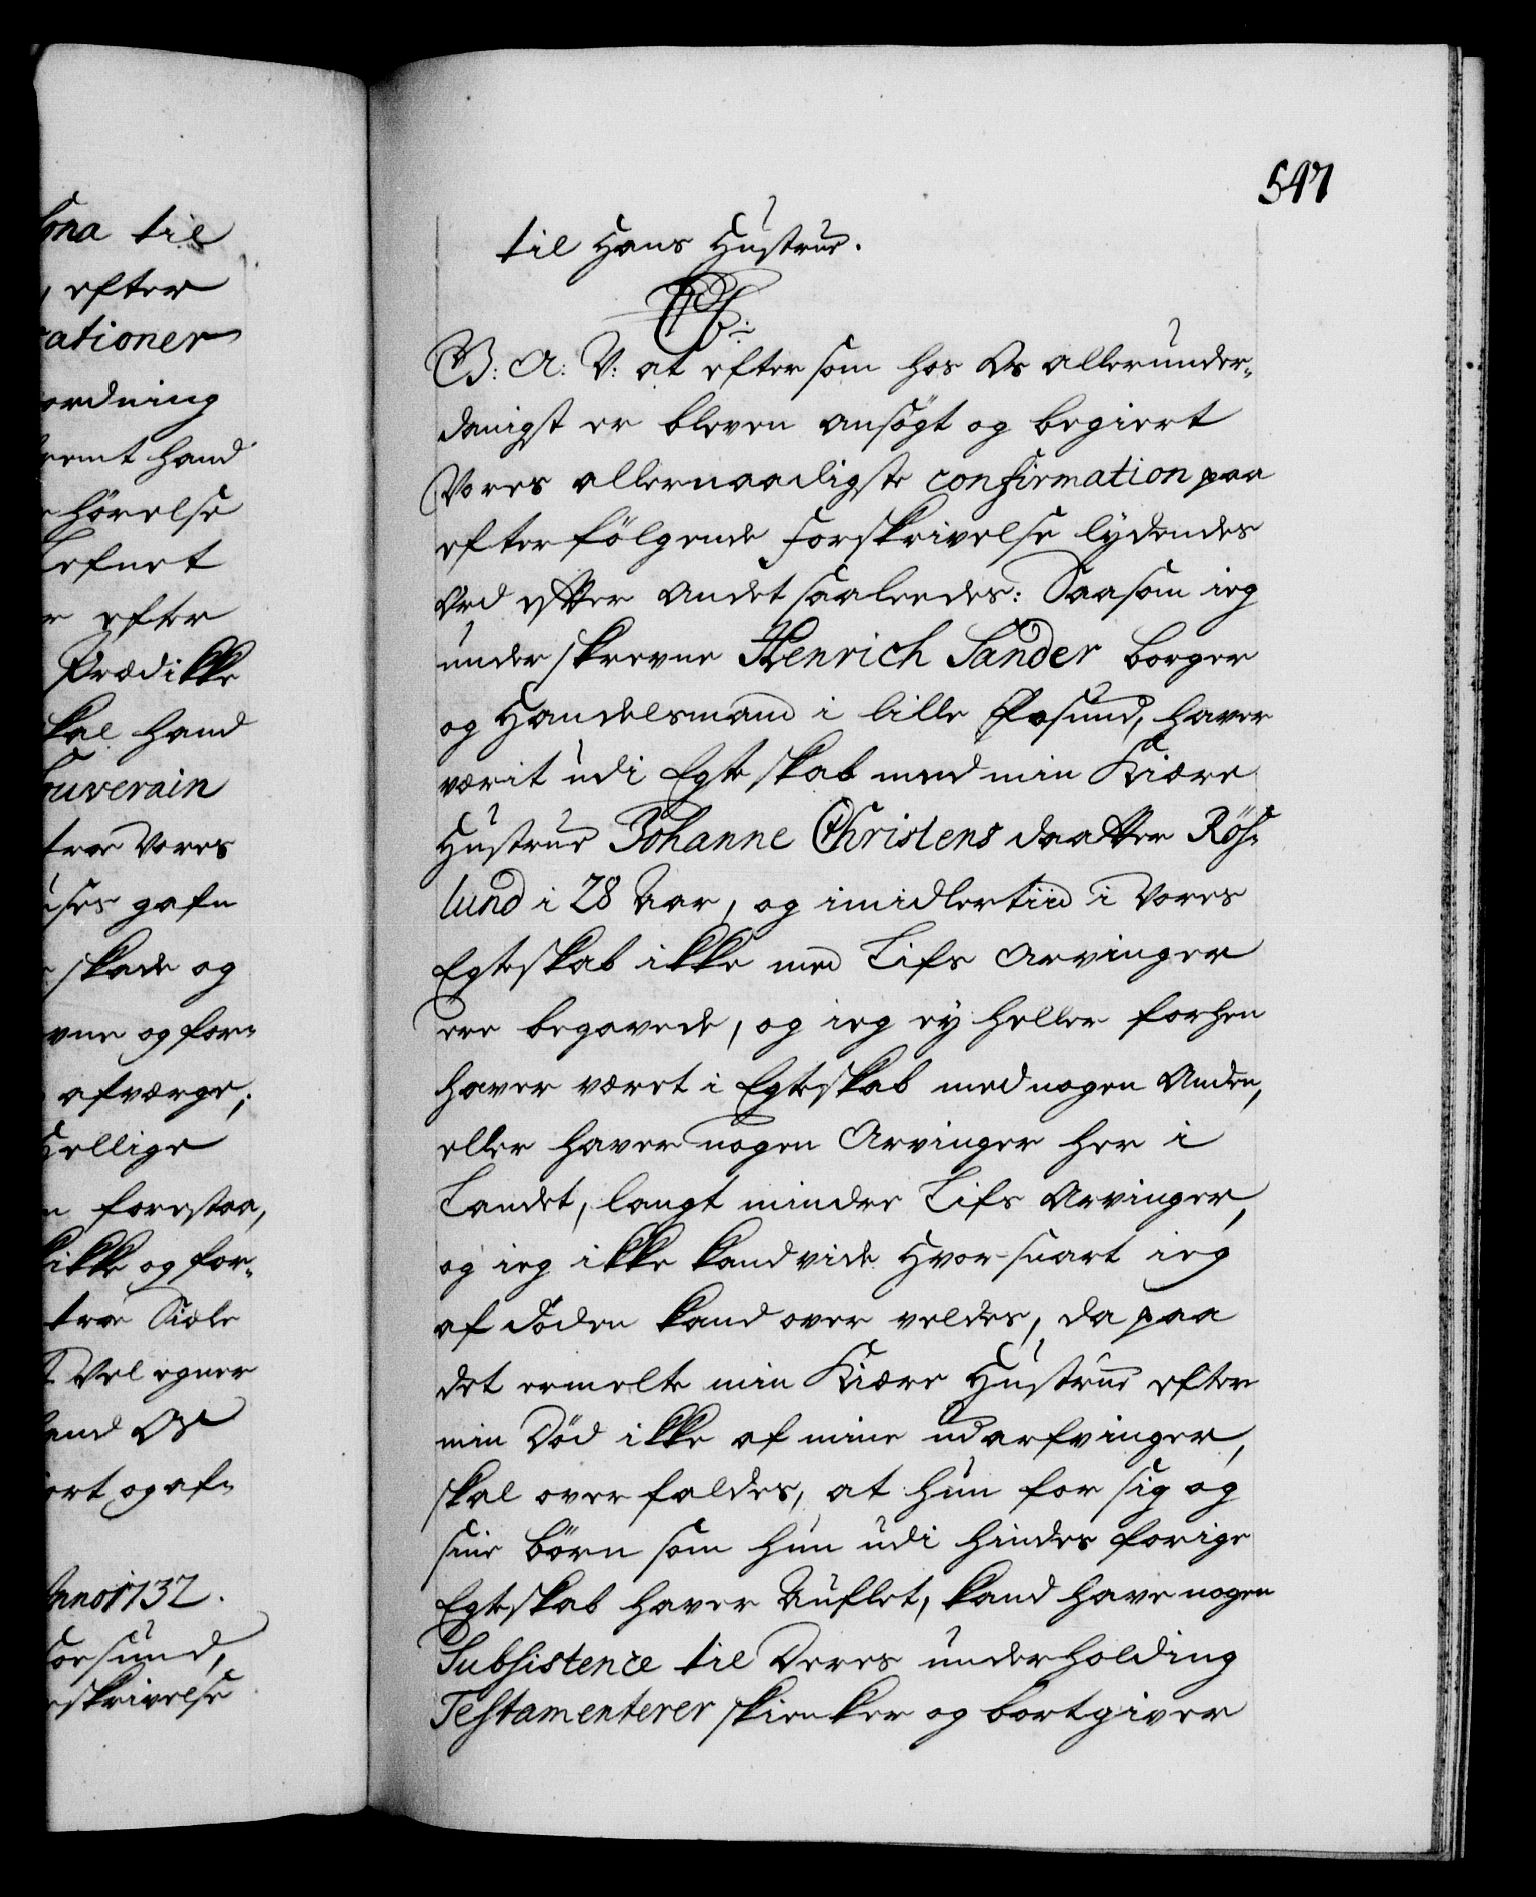 sona til
, efter
rationer
ordning
remt hand
r hørelse
Lefnet
r efter
Prædikke
skal hand
souverain
troe Vores
ises gafn
r skade og
vne og for-
afværge;
hellige
n forestaa,
skikke og for-
troe Siæle
t Vel egner
hand Os
iort og af-
Anno 1732.
Forsund,
rskrivelse
547
til Hans Hustrue.
C6:
G: A: V: at eftersom hos Os allerunder-
danigst er bleven ansøgt og begiert
Vores allernaadigste confirmation paa
efterfølgende Forskrivelse lydendes
Ord efter Andet saaleedes: Saasom ieg
underskrevne Henrich Sander borger
og Handelsmand i lille Fosund, haver
værit udi Egteskab med min Kiære
Hustrue Johanne Christens daatter Röh-
lund i 28 Aar, og imidlertiid i Vores
Egteskab ikke med Lifs Arvinger
ere begavede, og ieg ey heller forhen
haver været i Egteskab med nogen Anden,
eller haver nogen Arvinger her i
Landet, langt mindre Lifs Arvinger,
og ieg ikke kand vide hvor snart ieg
af døden kand overveldes, da paa
det ermelte min Kiære Hustrue efter
min Død ikke af mine udarfvinger,
skal overfaldes, at hun for sig og
sine børn som hun udi hindes forige
Egteskab haver Auflet, kand have nogen
Subsistence til Deres underholding
Testamenterer skienker og bortgiver